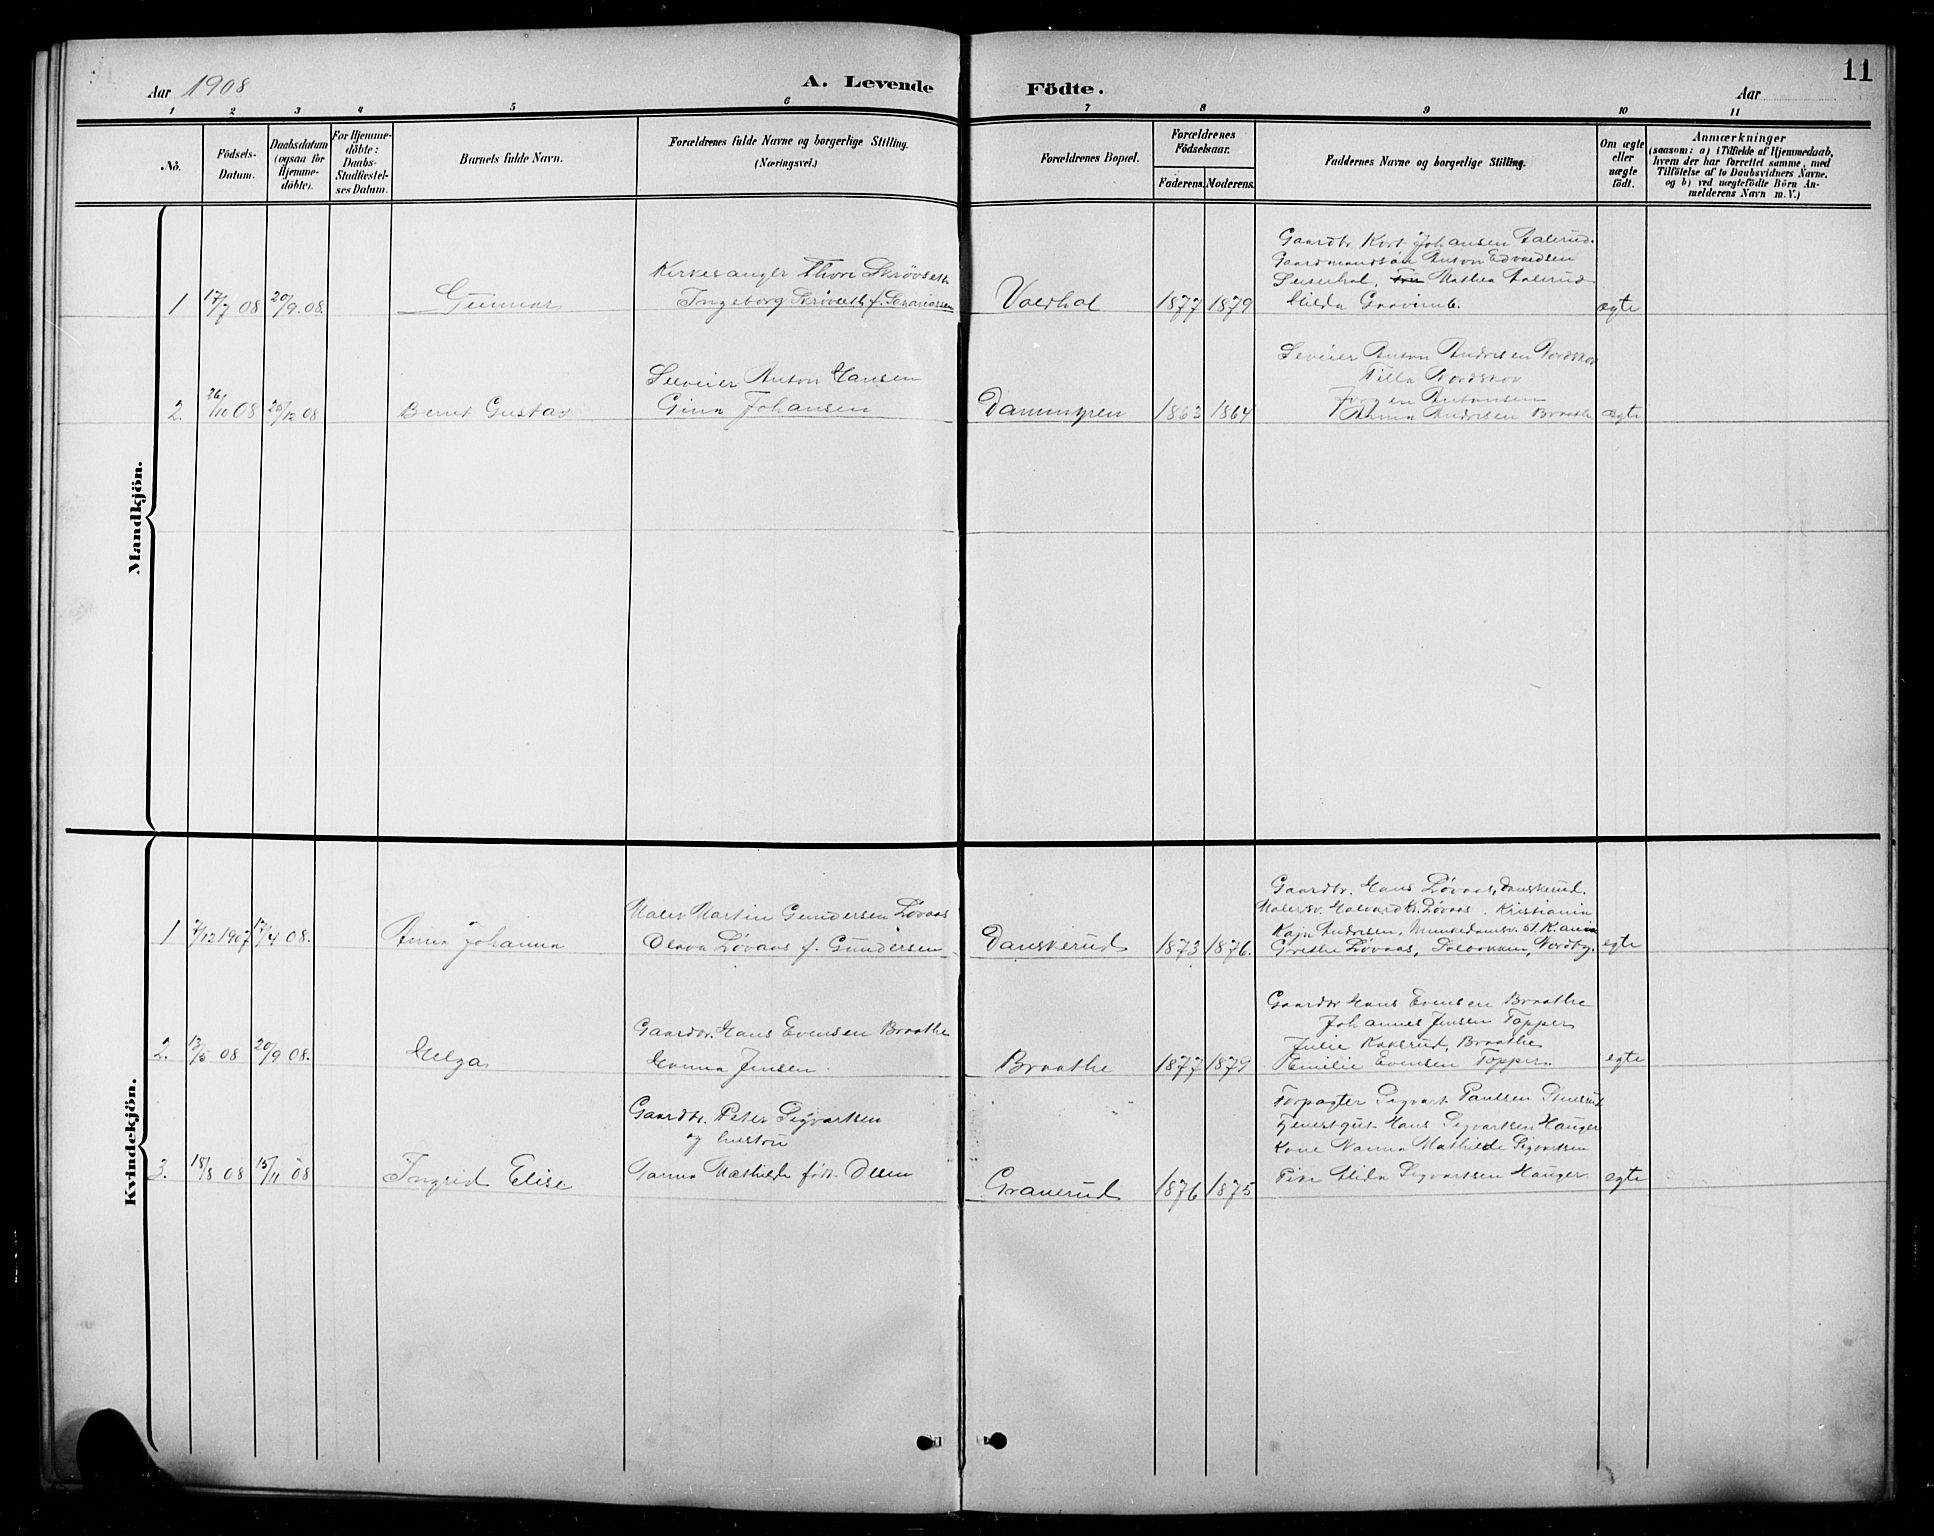 Aar 1908
A. Levende Födte.
11
Aar
1 2 3 4 5 6 7 8 9 10 11
No.
Födsels-Datum.
Daabsdatum (ogsaa for Hjemme-döbte).
For Hjemme-döbte: Daabs-Stadfæstel-ses Datum.
Barnets fulde Navn.
Forældrenes fulde Navne og borgerlige Stilling. (Næringsvei.)
Forældrenes Bopæl.
Forældrenes Födselsaar.
Faderens. Moderens.
Faddernes Navne og borgerlige Stilling.
Om ægte eller uægte födt.
Anmærkninger
(saasom: a) i Tilfælde af Hjemmedaab,
hvem der har forrettet samme, med
Tilföielse af to Daabsvidners Navne.
og b) ved uægtefödte Börn An-
melderens Navn m. V.)
Mandkjön.
1 17/7 08 20/9. 08. Gunnar
Kirkesanger Thore Skrövseth
Ingeborg Skrövseth f.
1877 1879
Gaardbr. Kort Johansen Aalerud.
Gaardmandsøn Anton Edvardsen
Mathea Aalerud
Hilda
ægte
2. 26/10 08 25/12 08 Bernt Gustav
Anton Hansen
Gina Johansen
Dammyren 1863 1864
Anton Andresen Nordskov
Tilla Nordskov
Jörgen Antonsen
Anna Andresen Braathe
ægte
Kvindekjön.
1 7/12 1907 17/4 08. Anna Johanna
Maler Martin Gundersen Lövaas
Olava Lövaas f. Gundersen
Danskerud 1873 1876.
Gaardbr. Hans Lövaas, Danskerud.
Malersv. Halvard Kr. Lövaas. Kristiania
Kaja Andresen, Munkedamsv. 51. K.ania
Grethe Lövaas, Solbakken, Nordby.
egte
2. 13/5 08 20/9 08. Helga
Gaardbr. Hans Evensen Braathe
Hanna Jensen.
Braathe 1877 1879
Gaardbr Hans Evensen Braathe
Johannes Jensen Topper
Julie Kakerud, Braathe
Emilie Evensen Topper.
egte
3. 18/8 08 15/11 08 Ingrid Elise
Gaardbr. Peter Sigvartsen
og hustru
Nanna Mathilde födt Olsen
Granerud 1876 1875
Forpagter Sigvart Paulsen
Tjenestgut Hans Sigvartsen Hauger
Kone Nanna Mathilde Sigvartsen
Pike Hilda Sigvartsen Hauger
egte